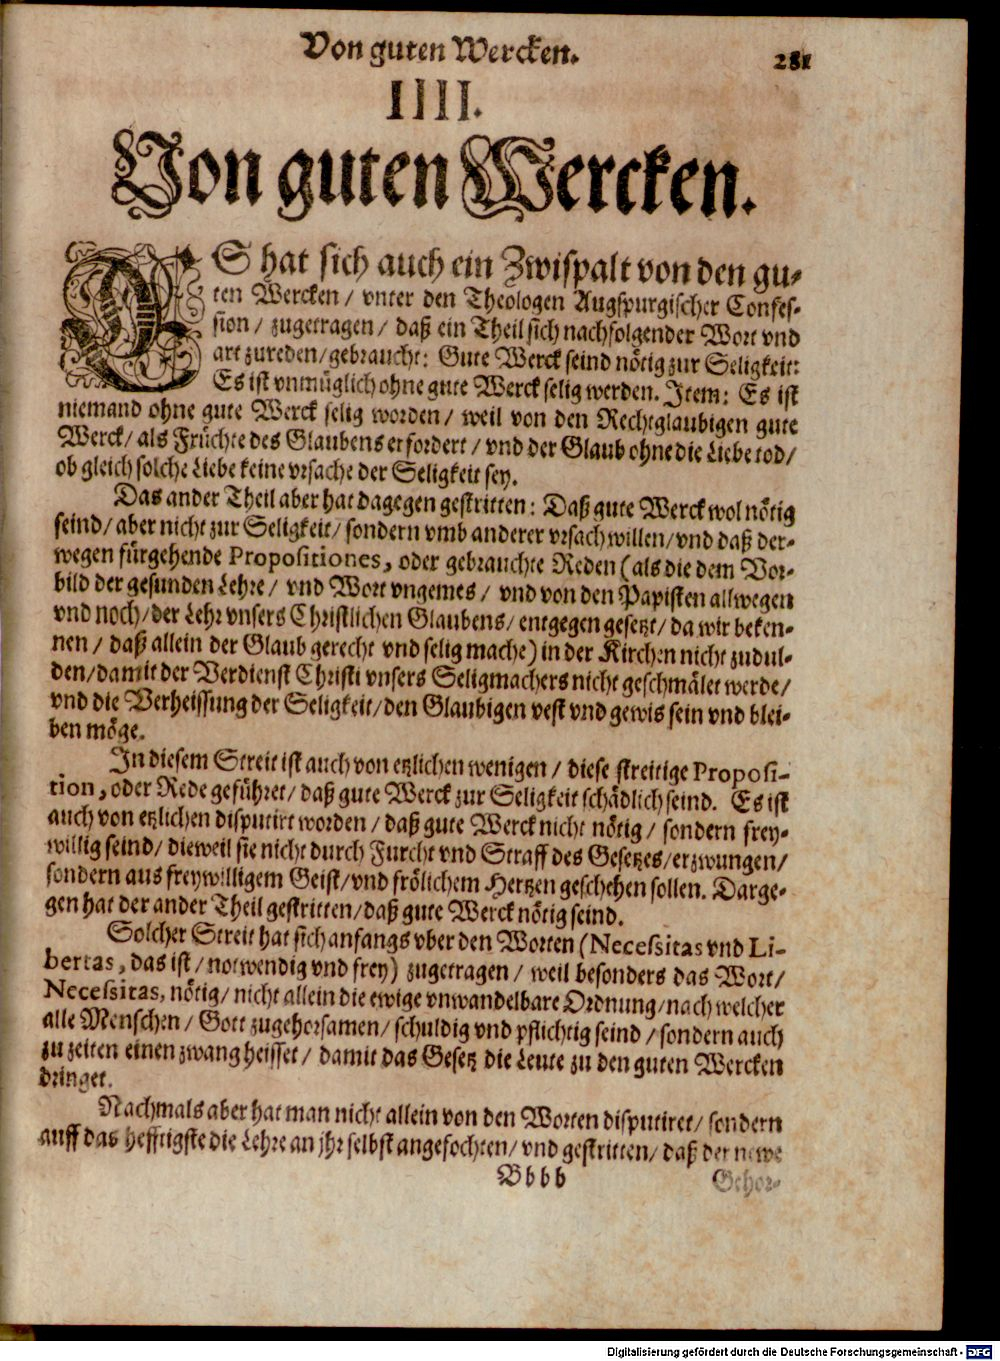 Von guten Wercken.
281
IIII.
Von guten Wercken.
ES hat sich auch ein Zwispalt von den gu-
ten Wercken / vnter den Theologen Augspurgischer Confes-
sion / zugetragen / daß ein Theil sich nachfolgender Wort vnd
art zureden / gebraucht: Gute Werck seind nötig zur Seligkeit:
Es ist vnmüglich ohne gute Werck selig werden. Item: Es ist
niemand ohne gute Werck selig worden / weil von den Rechtglaubigen gute
Werck / als Früchte des Glaubens erfordert / vnd der Glaub ohne die Liebe tod /
ob gleich solche Liebe keine vrsache der Seligkeit sey.
Das ander Theil aber hat dagegen gestritten: Daß gute Werck wol nötig
seind / aber nicht zur Seligkeit / sondern vmb anderer vrsach willen / vnd daß der-
wegen fürgehende Propositiones, oder gebrauchte Reden (als die dem Vor-
bild der gesunden Lehre / vnd Wort vngemes / vnd von den Papisten allwegen
vnd noch / der Lehr vnsers Christlichen Glaubens / entgegen gesetzt / da wir beken-
nen / daß allein der Glaub gerecht vnd selig mache) in der Kirchen nicht zudul-
den / damit der Verdienst Christi vnsers Seligmachers nicht geschmälet werde /
vnd die Verheissung der Seligkeit / den Glaubigen vest vnd gewis sein vnd blei-
ben möge.
In diesem Streit ist auch von etzlichen wenigen / diese streitige Proposi-
tion, oder Rede geführet / daß gute Werck zur Seligkeit schädlich seind. Es ist
auch von etzlichen disputirt worden / daß gute Werck nicht nötig / sondern frey-
willig seind / dieweil sie nicht durch Furcht vnd Straff des Gesetzes / erzwungen /
sondern aus freywilligem Geist / vnd frölichem Hertzen geschehen sollen. Darge-
gen hat der ander Theil gestritten / daß gute Werck nötig seind.
Solcher Streit hat sich anfangs vber den Worten (Necessitas vnd Li-
bertas, das ist / notwendig vnd frey) zugetragen / weil besonders das Wort /
Necessitas, nötig / nicht allein die ewige vnwandelbare Ordnung / nach welcher
alle Menschen / Gott zugehorsamen / schuldig vnd pflichtig seind / sondern auch
zu zeiten einen zwang heisset / damit das Gesetz die Leute zu den guten Wercken
dringet.
Nachmals aber hat man nicht allein von den Worten disputiret / sondern
auff das hefftigste die Lehre an jhr selbst angefochten / vnd gestritten / daß der newe
Bbbb
Gehor-
Digitalisierung gefördert durch die Deutsche Forschungsgemeinschaft - DFG